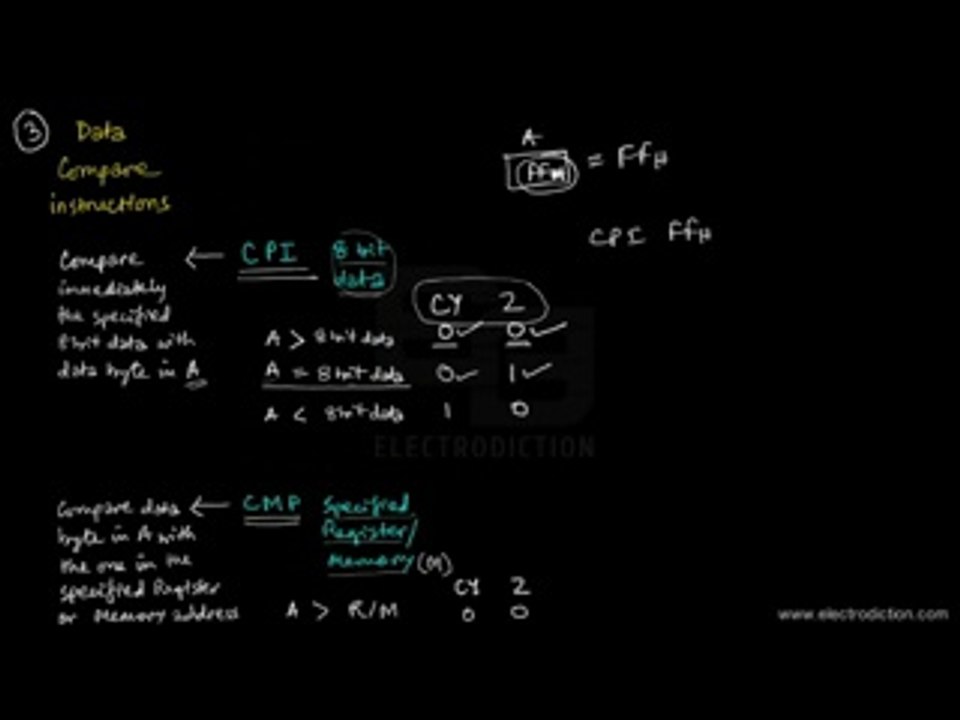 3 Data
Compare
instructions
A
FFH = FFH
CPI FFH
Compare ← CPI 8 bit
immediately data
the specified
8 bit data with
data byte in A
CY Z
A > 8 bit data 0 ✓ 0 ✓
A = 8 bit data 0 ✓ 1 ✓
A < 8 bit data 1 0
ELECTRODICTION
Compare data ← CMP Specified
byte in A with Register/
the one in the Memory (M)
specified Register
or Memory address
CY Z
A > R/M 0 0
www.electrodiction.com